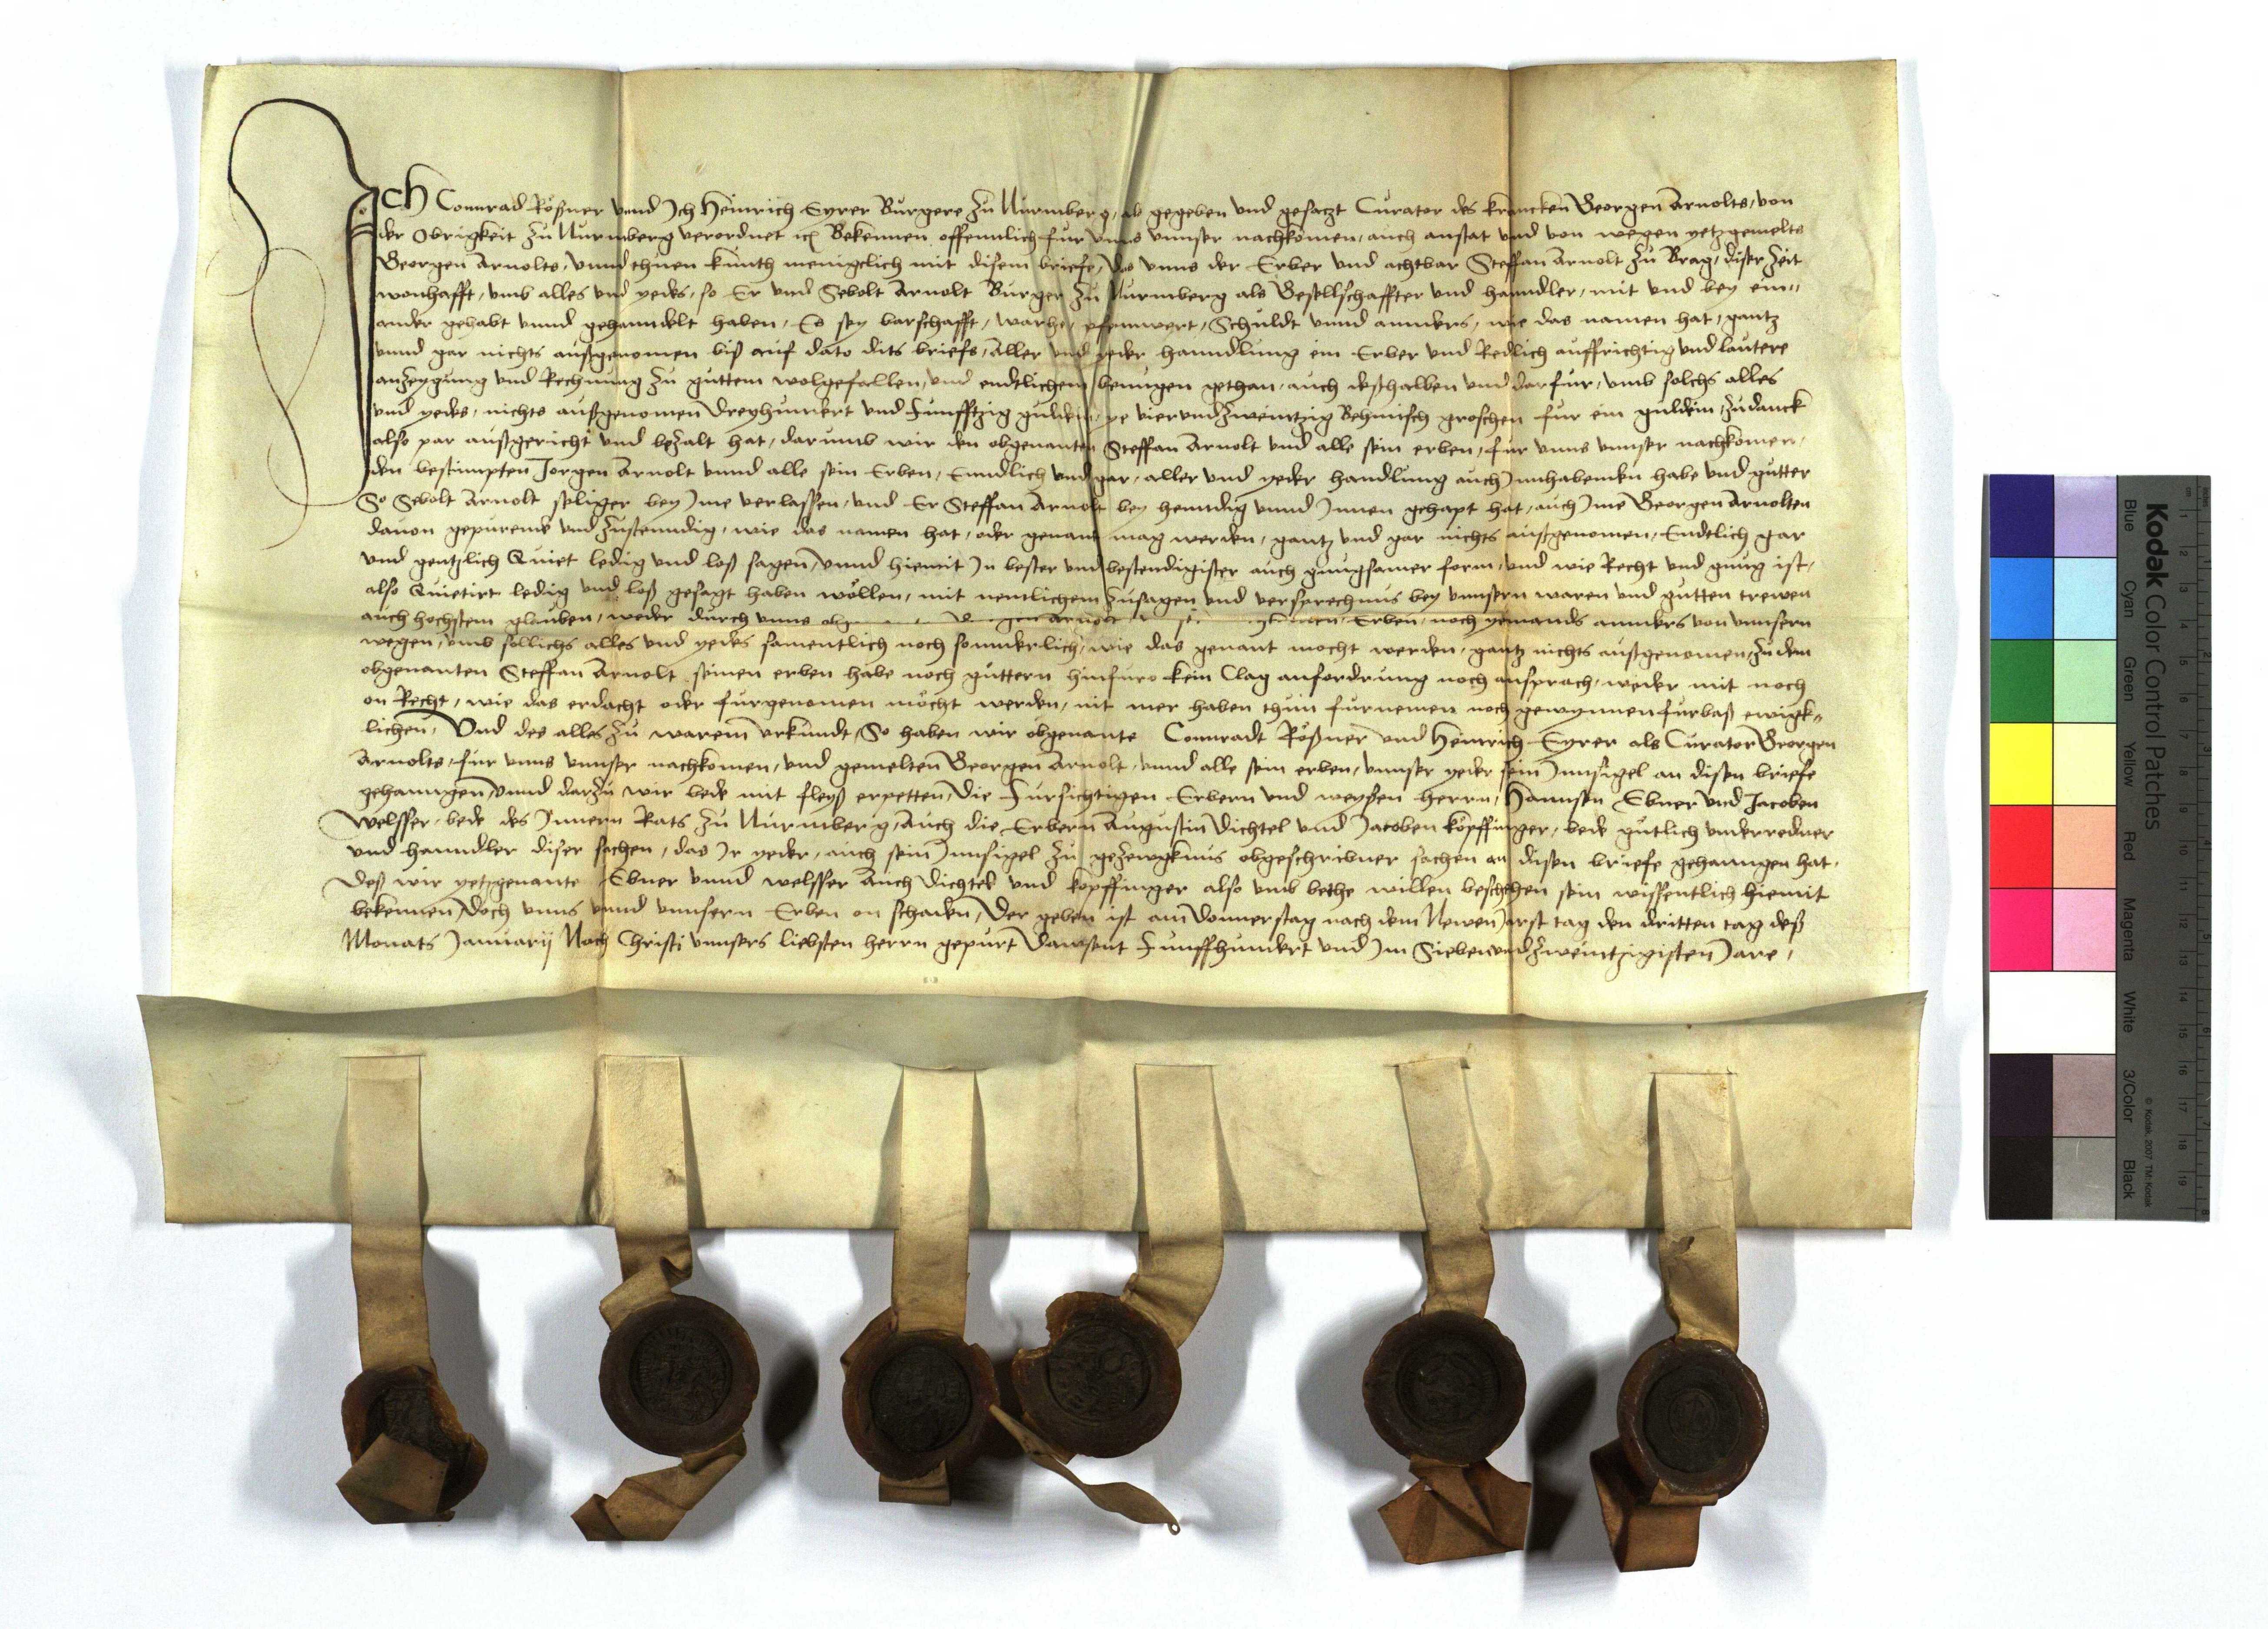 Ich Connrad Rößner vnnd Ich Heinrich Eyrer Burgere zu Nurmberg, als gegeben vnd gesatzt Curator des krancken Georgen Arnolts, von
der Obrigkeit zu Nurmberg verordnet Bekennen offennlich fur vnns vnnser nachkomen, auch anstat vnd von wegen yetzgemelts
Georgen Arnolts, vnnd thuen kunth menigclich mit disem briefe, das vnns der Erber vnd achtbar Steffan Arnolt zu Brag, diser Zeit
wonhafft, vmb alles vnd yedes, so Er vnd Sebolt Arnolt Burger zu Nurmberg als Gesellschaffter vnd hanndler, mit vnd bey ein-
ander gehabt vnnd gehanndelt haben, Es sey barschafft, warhe, pfenwert, Schuldt vnnd annders, wie das namen hat, gantz
vnnd gar nichts außgenomen biß auf dato dits briefs, Aller vnd yeder hanndlung ein Erber vnd Redlich auffrichtig vnd lautere
anzeygung vnd Rechnung zu guttem wolgefallen, vnd endtlichem benugen gethan, auch deßhalben vnd darfur, vmb solchs alles
vnd yedes, nichts außgenomen dreyhundert vnd Funfftzig gulden, ye viervndzweintzig Behmisch groschen fur ein guldein, zudanck
also par außgericht vnd bezalt hat, darumb wir den obgenanten Steffan Arnolt vnd alle sein erben, fur vnns vnnser nachkomen,
den bestimpten Jorgen Arnolt vnnd alle sein Erben, Enndlich vnd gar, aller vnd yeder handlung auch Innhabenden habe vnd gutter
So Sebolt Arnolt seliger bey Ime verlassen, vnd Er Steffan Arnolt bey henndig vnnd Innen gehapt hat, auch Ime Georgen Arnolten
dauon gepurende vnd zustenndig, wie das namen hat, oder genant mag werden, gantz vnd gar nichts außgenomen, Endtlich gar
vnd gentzlich Quiet ledig vnd loß sagen, vnnd hiemit In bester vnd bestendigister auch gnugsamer form, vnd wie Recht vnd gnug ist,
also Quietirt ledig vnd loß gesagt haben wöllen, mit nentlichem zusagen vnd versprechnus bey vnnsern waren vnd gutten trewen
auch hochstem glauben, weder durch vnns Georgen Arnolt Erben, noch yemands annders von vnnsern
wegen, vmb sollichs alles vnd yedes samentlich noch sonnderlich, wie das genant mocht werden, gantz nichts außgenomen, zu dem
obgenanten Steffan Arnolt seinen erben habe noch guttern hinfuro kein Clag anfordrung noch ansprach, weder mit noch
on Recht, wie das erdacht oder furgenomen möcht werden, nit mer haben thun furnemen noch gewynnen furbaß ewigk-
lichen, Vnd des alles zu warem vrkundt, So haben wir obgenante Connradt Rößner vnd Heinrich Eyrer als Curator Georgen
Arnolts, fur vnns vnnser nachkomen, vnd gemelten Georgen Arnolt, vnnd alle sein erben, vnnser yeder sein Innsigel an disen briefe
gehanngen, vnnd darzu wir bede mit fleyß erpetten, die Fursichtigen Erbern vnd weyßen herrn, Hannsen Ebner vnd Jacoben
Welsser, bede des Innern Rats zu Nurmberg, Auch die Erbern Augustin Dichtel vnd Jacoben köpffinger, bede gutlich vnderredner
vnd hanndler diser sachen, das Ir yeder, auch sein Innsigel zu gezewgknus obgeschribner sachen an disen briefe gehanngen hat,
Deß wir yetzgenante Ebner vnnd welsser Auch Dichtel vnd köpffinger also vmb bethe willen beschehen sein wissentlich hiemit
bekennen, doch vnns vnnd vnnsern Erben on schaden, Der geben ist am Donnerstag nach dem Newen Jarst tag den dritten tag deß
Monats Januarij Nach Christi vnnsers liebsten herrn gepurt Dawsent Funffhundert vnd Im Siebenvndzweintzigisten Jare,
Kodak Color Control Patches
Blue Cyan Green Yellow Red Magenta White 3/Color Black
© Kodak, 2007 TM: Kodak